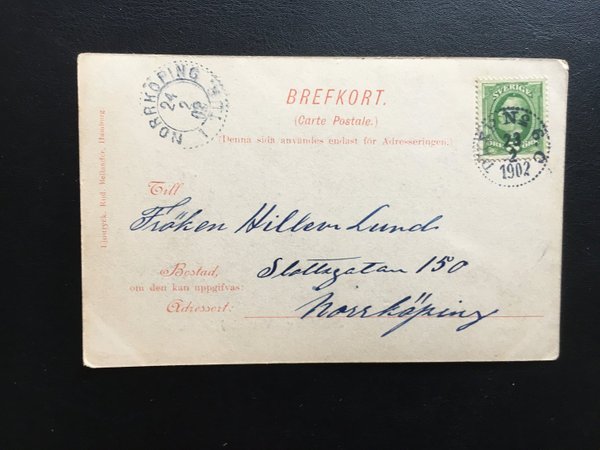 NORRKÖPING
24
2
02
BREFKORT.
(Carte Postale.)
(Denna sida användes endast för Adresseringen.)
SVERIGE
23
2
1902
Ljustryck. Rud. Bellander, Hamburg
Till
Fröken Lund
Bostad, Slottsgatan 150
om den kan uppgifvas:
Adressort: Norrköping